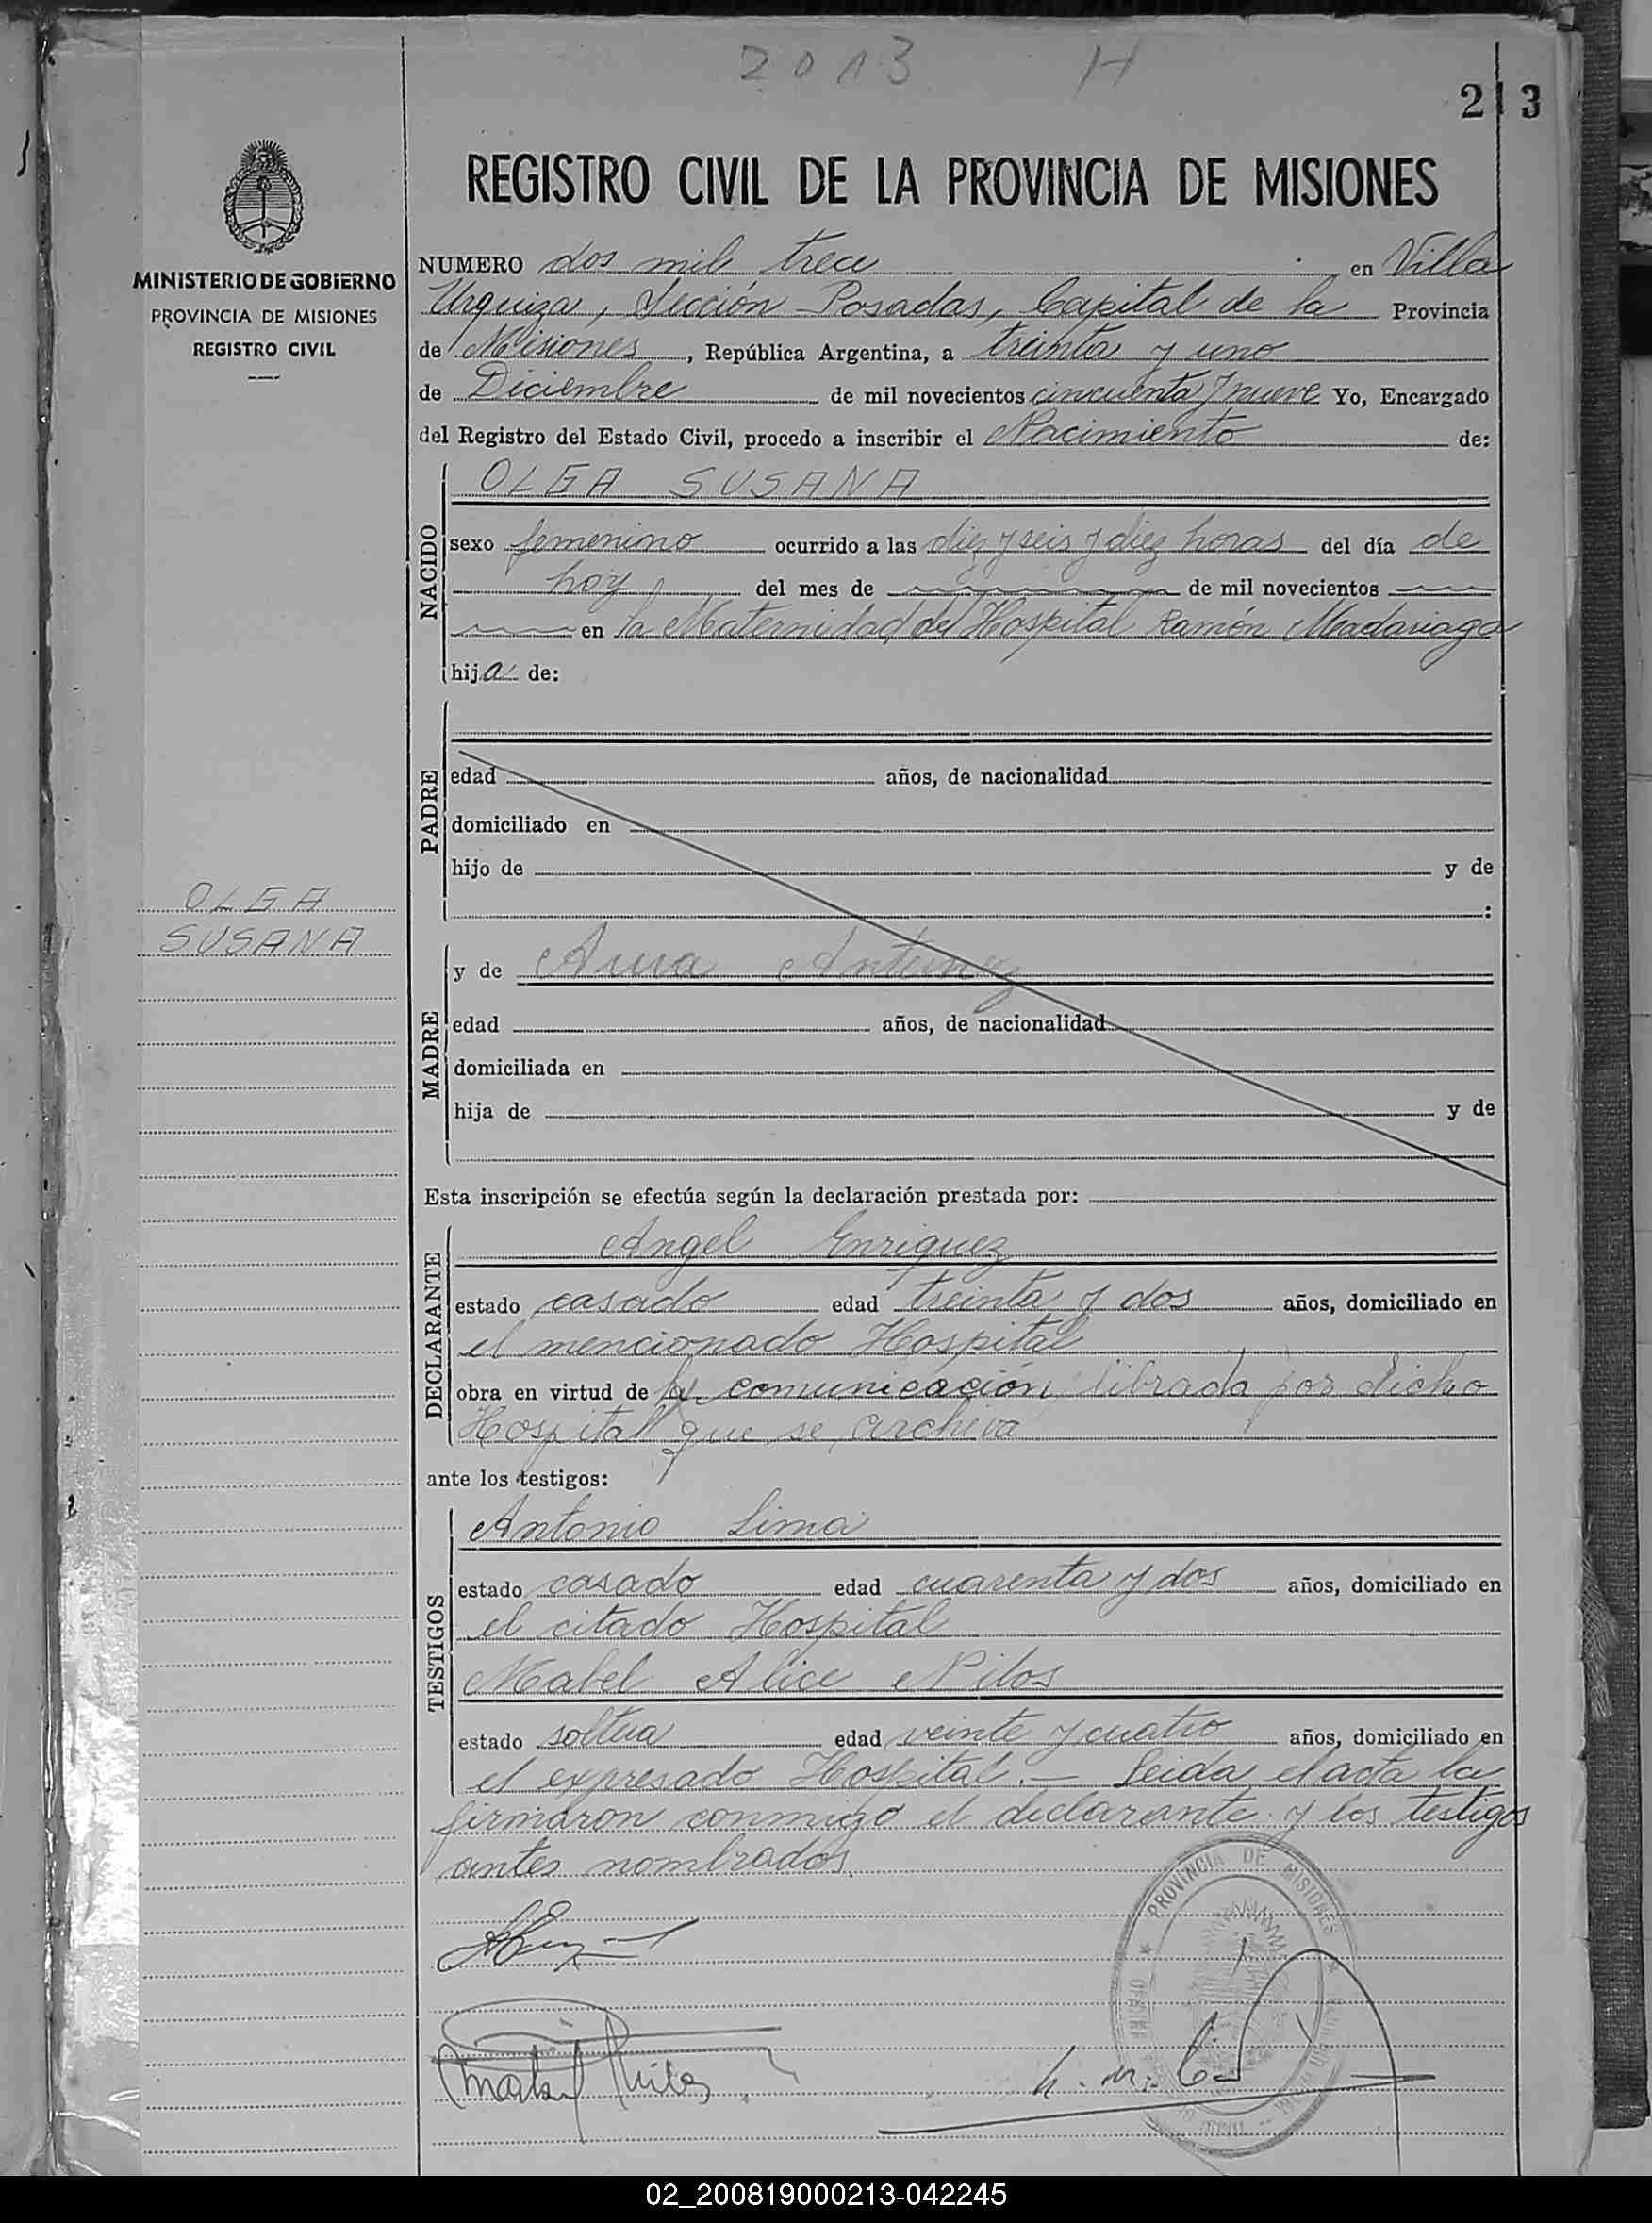 2013 H
213
REGISTRO CIVIL DE LA PROVINCIA DE MISIONES
MINISTERIO DE GOBIERNO
PROVINCIA DE MISIONES
REGISTRO CIVIL
NUMERO dos mil trece en Villa
Urquiza, Sección Posadas, Capital de la Provincia
de Misiones, República Argentina, a treinta y uno
de Diciembre de mil novecientos cincuenta y nueve Yo, Encargado
del Registro del Estado Civil, procedo a inscribir el Nacimiento de:
NACIDO
OLGA SUSANA
sexo femenino ocurrido a las diez y seis y diez horas del día de
hoy del mes de de mil novecientos
en la Maternidad del Hospital Ramón Madariaga
hija de:
PADRE
edad años, de nacionalidad
domiciliado en
hijo de y de
:
OLGA
SUSANA
MADRE
y de Ana Antunez
edad años, de nacionalidad
domiciliada en
hija de y de
Esta inscripción se efectúa según la declaración prestada por:
DECLARANTE
Angel Enriquez
estado casado edad treinta y dos años, domiciliado en
el mencionado Hospital
obra en virtud de la comunicación librada por dicho
Hospital que se archiva
ante los testigos:
TESTIGOS
Antonio Lima
estado casado edad cuarenta y dos años, domiciliado en
el citado Hospital
Mabel Alice Pilos
estado soltera edad veinte y cuatro años, domiciliado en
el expresado Hospital.- Leida el acta la
firmaron conmigo el declarante y los testigos
antes nombrados.
PROVINCIA DE MISIONES
02_200819000213-042245